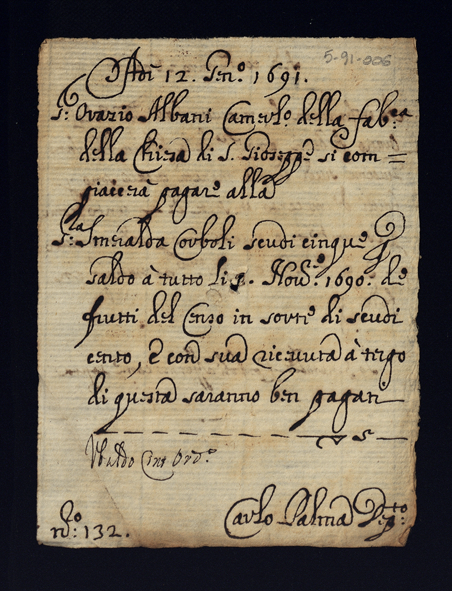 5-91-006
Adi 12. Gen.º 1691.
S.r Orazio Albani Camerl.º della fab.ca
della Chiesa di S. Gioseppe si com=
piacerà pagare alla
S.ra Smeralda Corboli scudi cinque
saldo à tutto li p. Nov.e 1690. de
frutti del Censo in sorte di scudi
cento, è con sua ricevuta à tergo
di questa saranno ben pagati
5
Ubaldo
Carlo Palma
n.º: 132.